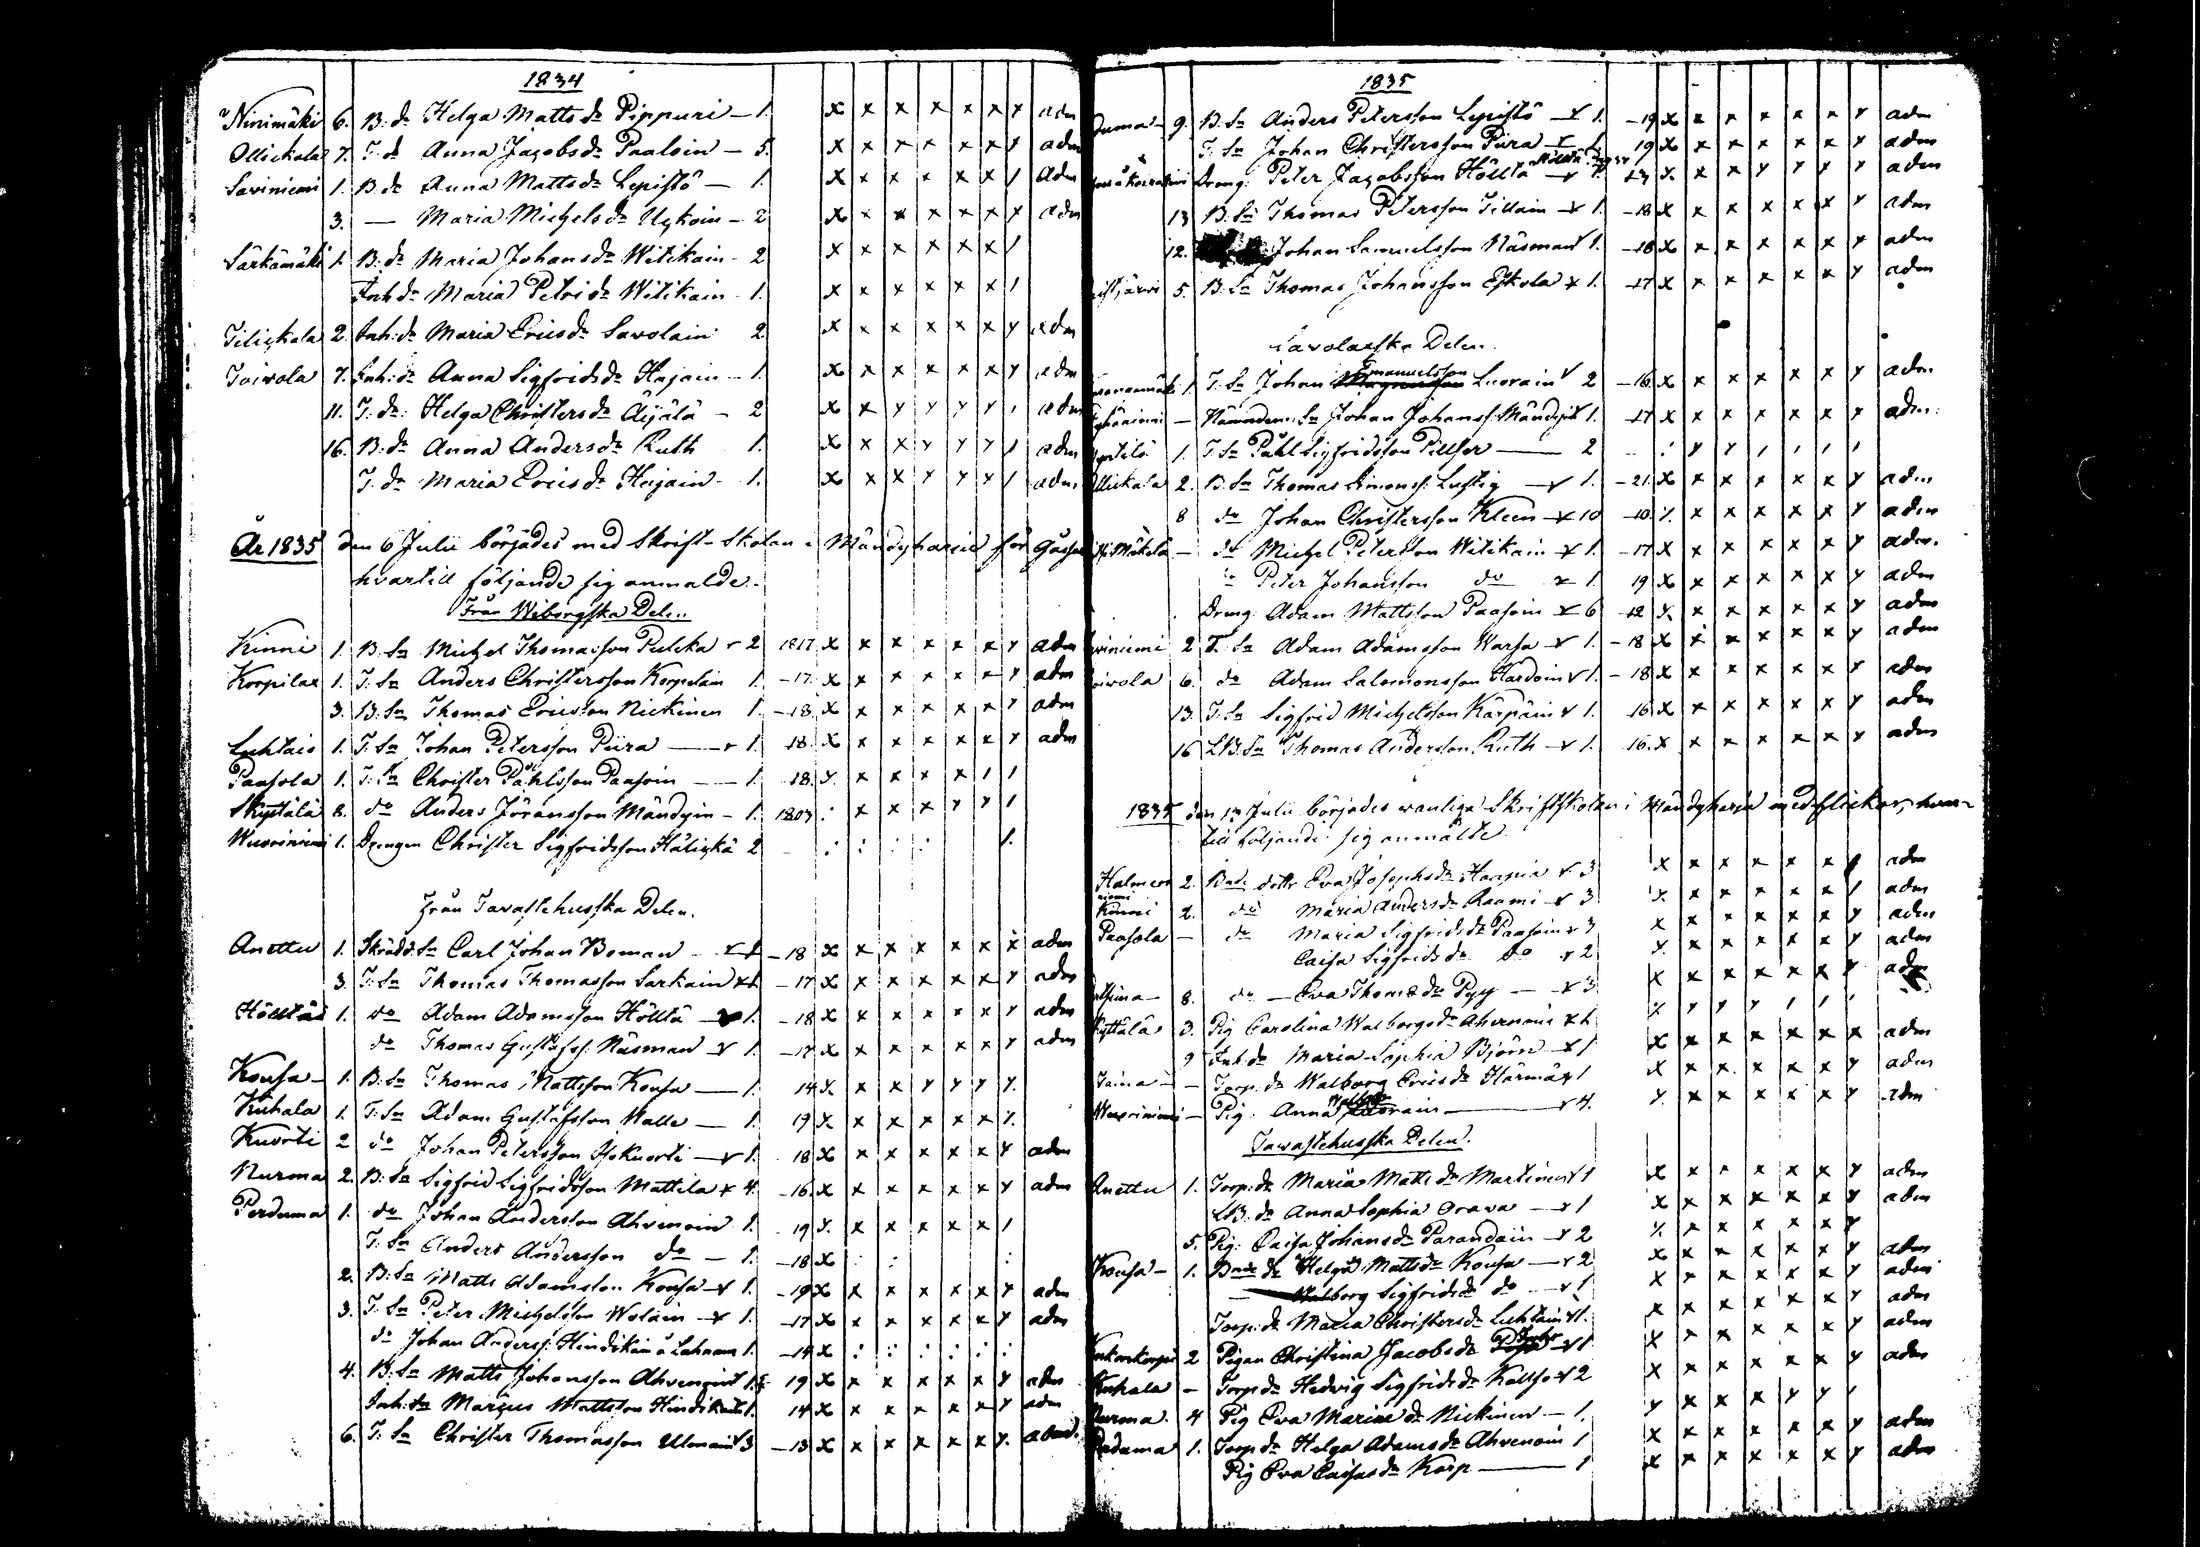 1834
Ninimäki 6. B: dr Helga Matts dr Pippuri - 1. x x x x x x y adm
Ollickala 7. T: dr Anna Jacobs dr Paaloin - 5. x x x x x x y adm
Saviniemi 1. B: dr Anna Matts dr Lepistö - 1. x x x x x x 1 adm
3. — Maria Michels dr Uykoin - 2 x x x x x x y adm
Särkämäki 1. B: dr Maria Johans dr Witikain - 2 x x x x x x 1
Inh: dr Maria Petri dr Witikain - 1. x x x x x x 1
Tilickala 2. Inh: dr Maria Erics dr Savolain 2 x x x x x x y adm
Toivola 7. Inh: dr Anna Sigfrids dr Hajain - 1. x x x x x x y adm
11. T: dr: Helga Christers dr Äijälä - 2 x x y y y y 1 adm
16. B: dr Anna Anders dr Ruth 1. x x x y y y 1 adm
T: dr Maria Erics dr Hajain - 1. x x x y y y 1 adm
År 1835 den 6 Julii börjades med Skrift-Skolan i Mändyharju för Gossar
hvartill följande sig anmälde.
Från Wiborgska Delen
Kinni 1. B: Sn Michel Thomasson Pulcka r 2 1817 x x x x x x y adm
Korpilax 1. T: Sn Anders Christersson Korpelain 1. -17. x x x x x x y adm
3. B: Sn Thomas Ericsson Nickinen 1. -18. x x x x x x y adm
Luhtais 1. T: Sn Johan Petersson Piira — r 1. 18. x x x x x x y adm
Paasola 1. T: Sn Christer Påhlsson Paasoin — 1. 18. y. x x x x 1 1
Skyttälä 8. do Anders Jöransson Mändyin - 1. 1803
Drengen Christer Sigfridsson Hälickä 2
Från Tavastehusska Delen.
Anettu 1. Skrädd: Sn Carl Johan Boman -18 x x x x x x x adm
3. T: Sn Thomas Thomasson Sarkain -17 x x x x x x y adm
Hölttä 1. do Adam Adamsson Hölttä 1. -18 x x x x x x y adm
do Thomas Gustafss: Näsman r 1. -17 x x x x x x y adm
Kousa 1. B: Sn Thomas Mattsson Kousa — 1. 14 x. x x y y y y.
Kuhala 1. T: Sn Adam Gustafsson Walle — 1. 19 x. x x x x x y.
Kuorti 2 do Johan Petersson Isokuorti r 1. 18 x x x x x x y adm
Nurma 2. B: Sn Sigfrid Sigfridsson Mattila r 4. -16. x x x x x x y adm
Perduma 1. do Johan Andersson Ahvenain 1. 19 y. x x x x x 1
T: Sn Anders Andersson do - 1. -18 x
2. B: Sn Matts Adamsson Kousa r 1. -19 x x x x x x y adm
3. T: Sn Peter Michelsson Wolain r 1. -17 x x x x x x y adm
do Johan Anderss: Hindikain 1. -14 x
4. B: Sn Matts Johansson Ahvenain 19 x x x x x x y adm
Inh: Sn Marcus Mattsson Hindikain 1. 14 x x x x x x y adm
6. T: Sn Christer Thomasson 3 -13 x x x x x x y. adm.
1835
9. B: Sn Anders Petersson Lepistö r 1. -19 x x x x x x y adm
T: Sn Johan Christersson Piira r 19 x x x x x x y adm
Dreng: Peter Jacobsson Hölttä adm
13 B: Sn Thomas Petersson Tillain r 1. -18 x x x x x x y adm
12. Johan Samuelsson Näsman r 1. -18 x x x x x x y adm
5. B: Sn Thomas Johansson Eskola r 1. -17 x x x x x x y adm
Savolaxska Delen.
1. T: Sn Johan Emanuelsson Luorain r 2 -16. x x x x x x y adm
— Nämndem: Sn Johan Johanss: Mändyin 1. -17 x x x x x x y adm:
1. T: Sn Påhl Sigfridsson Pillser — 2
Ollickala 2. B: Sn Thomas Simonss: Lustig r 1. -21. x x x x x x y adm
8 do Johan Christersson Kleen r 10 -10. y. x x x x x y adm
Mäkelä - do Michel Petersson Witikain r 1. -17 x x x x x x y adm.
do Peter Johansson do r 1. 19 x x x x x x y adm
Dreng: Adam Mattsson Paasoin r 6 -12 x x x x x x y adm
2 T: Sn Adam Adamsson Warsa r 1. -18 x x x x x x y adm
6. do Adam Salomonsson Hardoin r 1. - 18 x x x x x x y adm
13. T: Sn Sigfrid Michelsson Kärpäin r 1. 16 x x x x x x y adm
16 LB: Sn Thomas Andersson Ruth r 1. 16. x x x x x x y adm
1835 den 13 Julii börjades vanliga Skriftskolan i Mändyharju med flickor, hvar-
till följande sig anmälte
2. Bnd: dottr Eva Josephs dr r 3 x x x x x x adm
Kinni 2. do Maria Anders dr Raami r 3 y. x x x x x 1 adm
Paasola - do Maria Sigfrids dr Paasoin r 3 x x x x x x y adm
Caisa Sigfrids dr do r 2 y. x x x x x y adm
8. do — Eva Thoms dr Pyy — r 3 x x x x x x y adm
3. Pig Carolina Walborgs dr Ahvenain
9 Inh: dr Maria Sophia Björn r 1 x x x x x x x adm
— Torp: dr Walborg Erics dr Härmä r 1 x x x x x x y adm
— Pig: Anna r 4. y. x x x x x y adm
Tavastehusska Delen.
Anettu 1. Torp: dr Maria Matts dr Martinen r 1 x x x x x x y adm
LB: dr Anna Sophia Orava — r 1 x x x x x x y adm
5. Pig: Caisa Johans dr Parandain r 2 y. x x x x x y
Kousa - 1. Bnd: dr Helga Matts dr Kousa — r 2 x x x x x x y adm
Walborg Sigfrids dr do — r 1 x x x x x x y adm
Torp: dr Maria Christers dr Luhtain r 1. x x x x x x y adm
2 Pigan Christina Jacobs dr r 1 x x x x x x y adm
Kuhala - Torp: dr Hedvig Sigfrids dr Källso r 2 x x x x x x y adm
Nurma. 4 Pig Eva Maria dr Nickinen — 1. y x x x y y 1
Perduma 1. Torp: dr Helga Adams dr Ahvenain 1 x x x x x x y adm
Pig Eva Caisas dr Karp — 1 x x x x x x y adm